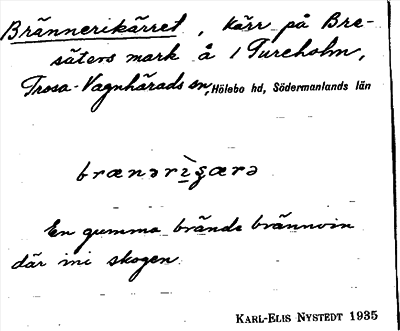 Brännerikärret, Kärr på Bre-
säters mark å 1 Tureholm,
Trosa-Vagnhärads sn, Hölebo hd, Södermanlands län
brænərìʂærə
En gumma brände brännvin
där ini skogen.
KARL-ELIS NYSTEDT 1935